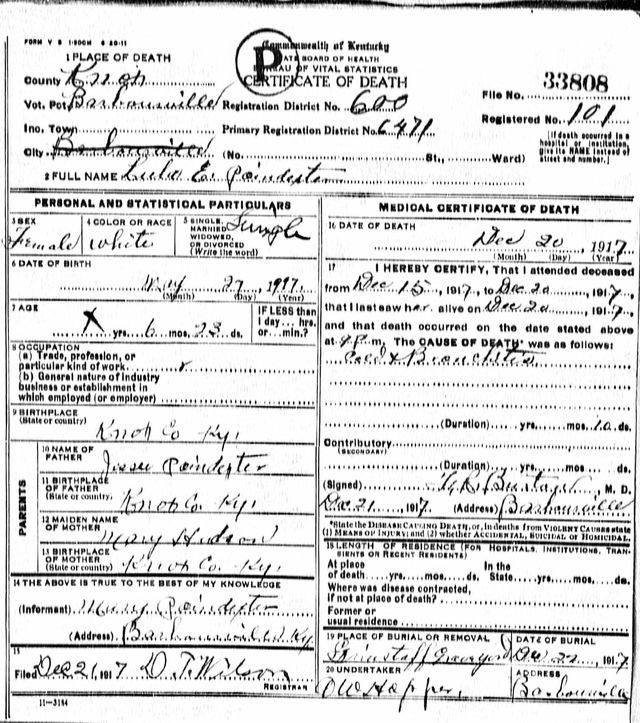 FORM V S 1-50OM 6 20-11
1 PLACE OF DEATH
Commonwealth of Kentucky
STATE BOARD OF HEALTH
BUREAU OF VITAL STATISTICS
CERTIFICATE OF DEATH
P
County Knox
File No. 33808
Vot. Pct. Barbourville Registration District No. 600
Registered No. 101
Inc. Town Primary Registration District No. 6471
[If death occurred in a hospital or institution, give its NAME instead of street and number.]
City Barbourville (No. St., Ward)
2 FULL NAME Lula E. Poindexter
PERSONAL AND STATISTICAL PARTICULARS
3 SEX Female
4 COLOR OR RACE White
5 SINGLE, MARRIED, WIDOWED, OR DIVORCED (Write the word) Single
6 DATE OF BIRTH
May 27, 1917.
(Month) (Day) (Year)
7 AGE
X yrs. 6 mos. 23 ds.
IF LESS than 1 day... hrs. or... min.?
8 OCCUPATION
(a) Trade, profession, or particular kind of work
(b) General nature of industry business or establishment in which employed (or employer)
9 BIRTHPLACE
(State or country)
Knox Co Ky.
PARENTS
10 NAME OF FATHER
Jesse Poindexter
11 BIRTHPLACE OF FATHER
(State or country)
Knox Co. Ky.
12 MAIDEN NAME OF MOTHER
Mary Hudson
13 BIRTHPLACE OF MOTHER
(State or country)
Knox Co. Ky.
14 THE ABOVE IS TRUE TO THE BEST OF MY KNOWLEDGE
(Informant) Mary Poindexter
(Address) Barbourville Ky
15
Filed Dec 21 1917 D. T. Wilson
REGISTRAR
11-3184
MEDICAL CERTIFICATE OF DEATH
16 DATE OF DEATH
Dec 20, 1917
(Month) (Day) (Year)
17 I HEREBY CERTIFY, That I attended deceased
from Dec 15, 1917, to Dec 20, 1917,
that I last saw her alive on Dec 20, 1917,
and that death occurred on the date stated above
at 9 P.m. The CAUSE OF DEATH* was as follows:
Cold & Bronchitis
(Duration) yrs. mos. 10 ds.
Contributory
(SECONDARY)
(Duration) yrs. mos. ds.
(Signed) M. D.
Dec 21, 1917 (Address) Barbourville
*State the DISEASE CAUSING DEATH, or, in deaths from VIOLENT CAUSES state (1) MEANS OF INJURY; and (2) whether ACCIDENTAL, SUICIDAL OR HOMICIDAL.
18 LENGTH OF RESIDENCE (FOR HOSPITALS, INSTITUTIONS, TRANSIENTS OR RECENT RESIDENTS)
At place of death yrs. mos. ds. In the State yrs. mos. ds.
Where was disease contracted,
if not at place of death?
Former or usual residence
19 PLACE OF BURIAL OR REMOVAL
Graveyard
DATE OF BURIAL
Dec 22, 1917
20 UNDERTAKER
O W Hopper,
ADDRESS
Barbourville